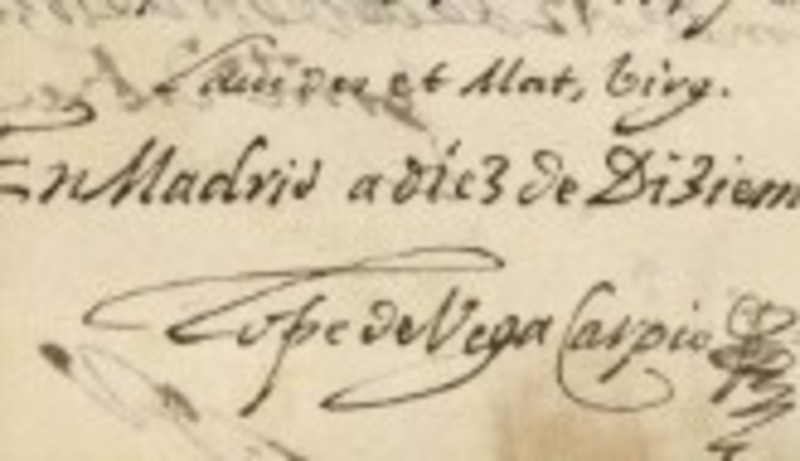 Laus deo et Mat, Virg.
En Madrid a diez de Diziem
Lope de Vega Carpio